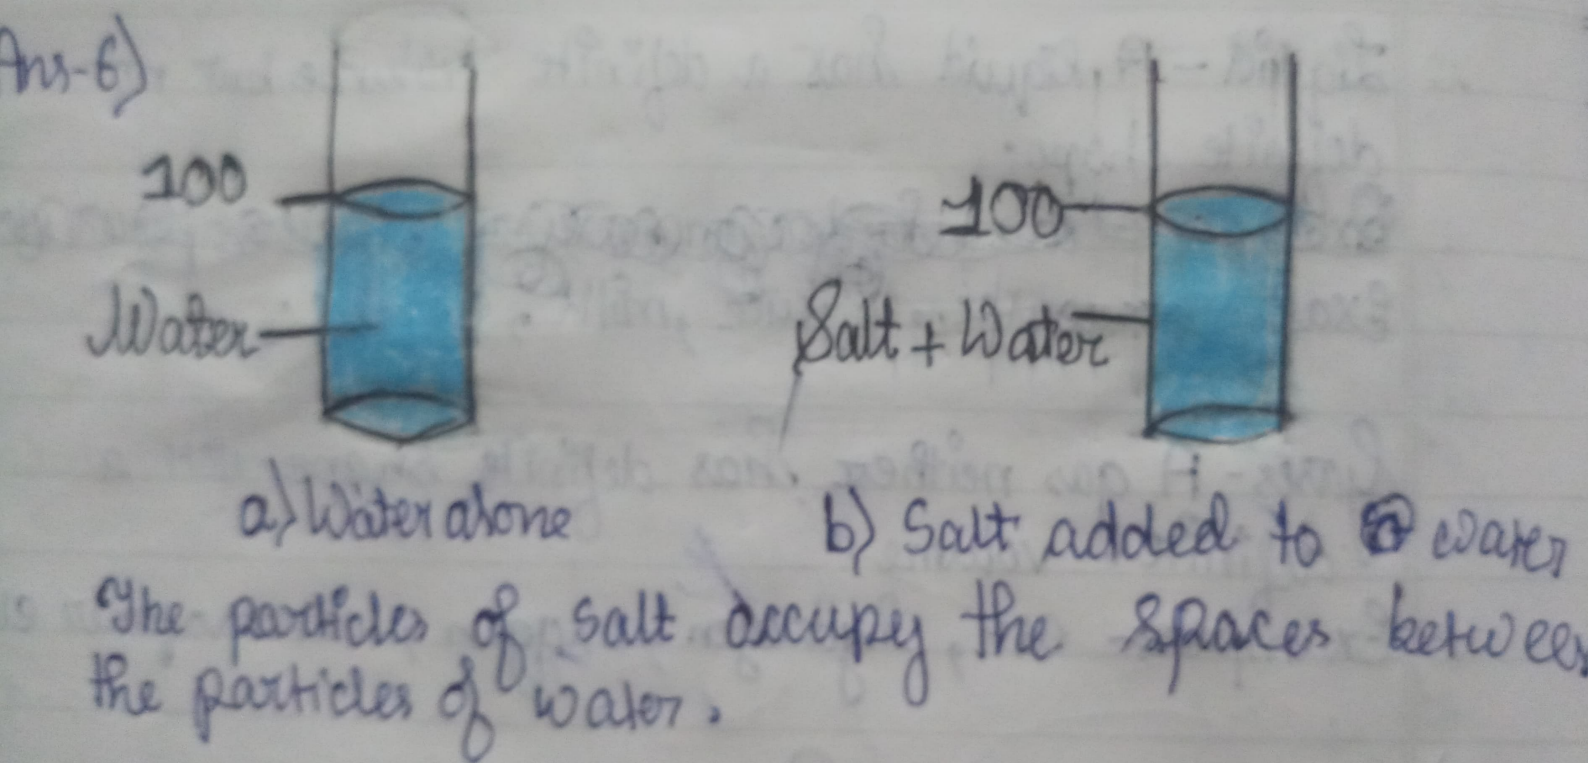 Ans-6)
100
100
Water
Salt + Water
a) Water alone
b) Salt added to water
The particles of salt occupy the spaces between
the particles of water.